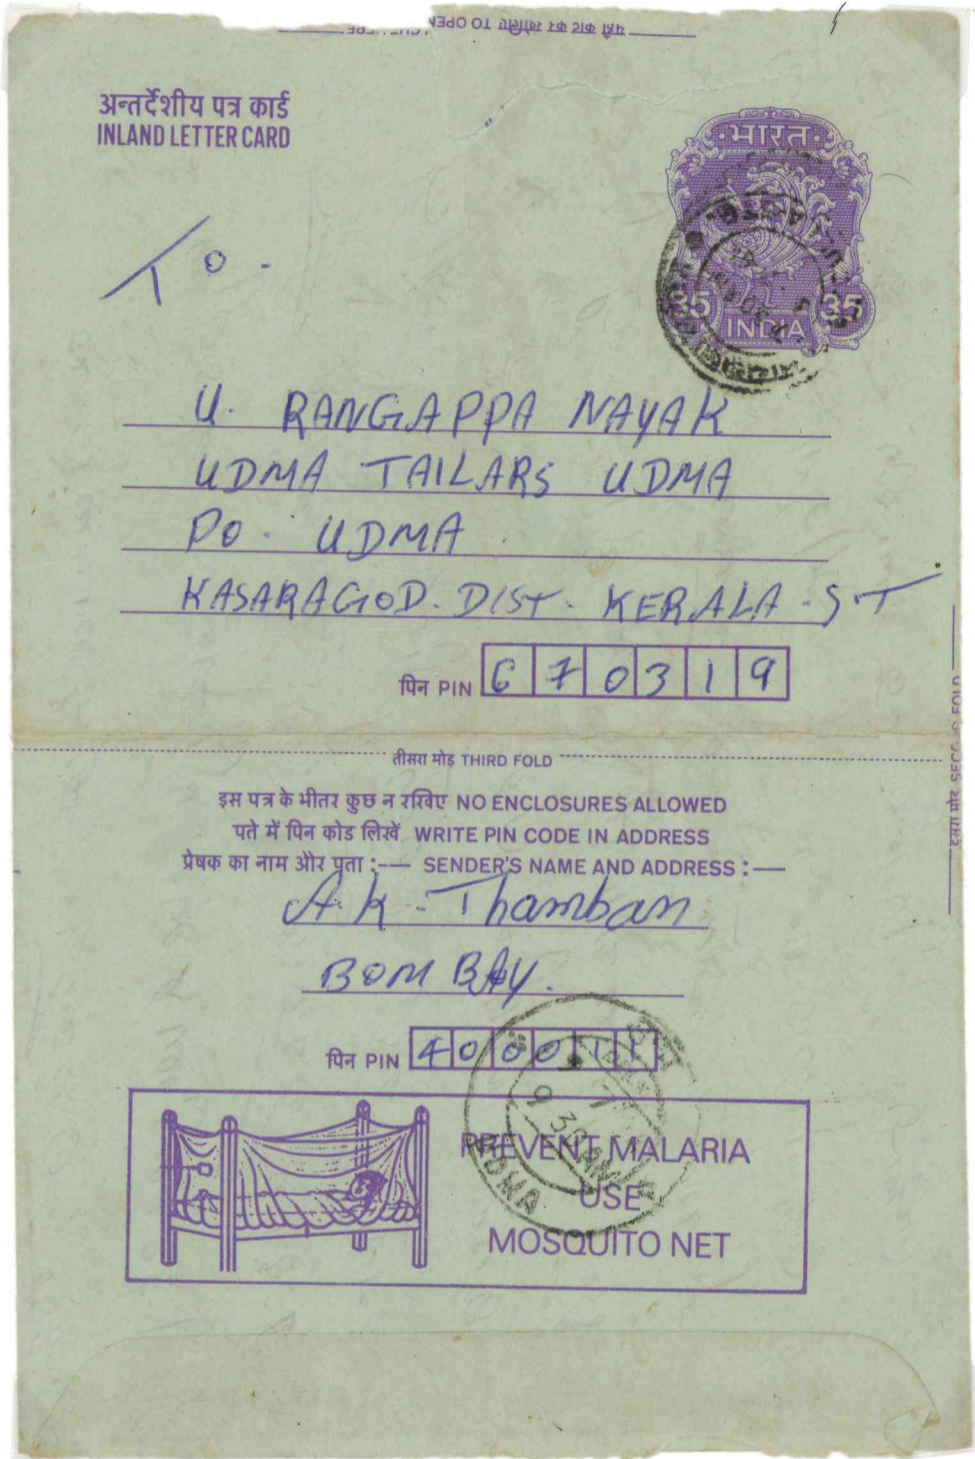 यहाँ काट कर खोलिए TO OPEN
अन्तर्देशीय पत्र कार्ड
INLAND LETTER CARD
भारत
35 35
INDIA
To.
U. RANGAPPA NAYAK
UDMA TAILARS UDMA
PO. UDMA
KASARAGOD. DIST. KERALA. S.T
पिन PIN 670319
तीसरा मोड़ THIRD FOLD
दूसरा मोड़ SECOND FOLD
इस पत्र के भीतर कुछ न रखिए NO ENCLOSURES ALLOWED
पते में पिन कोड लिखें WRITE PIN CODE IN ADDRESS
प्रेषक का नाम और पता :— SENDER'S NAME AND ADDRESS :—
A.K. Thamban
BOMBAY.
पिन PIN 400011
PREVENT MALARIA
USE
MOSQUITO NET
UDMA